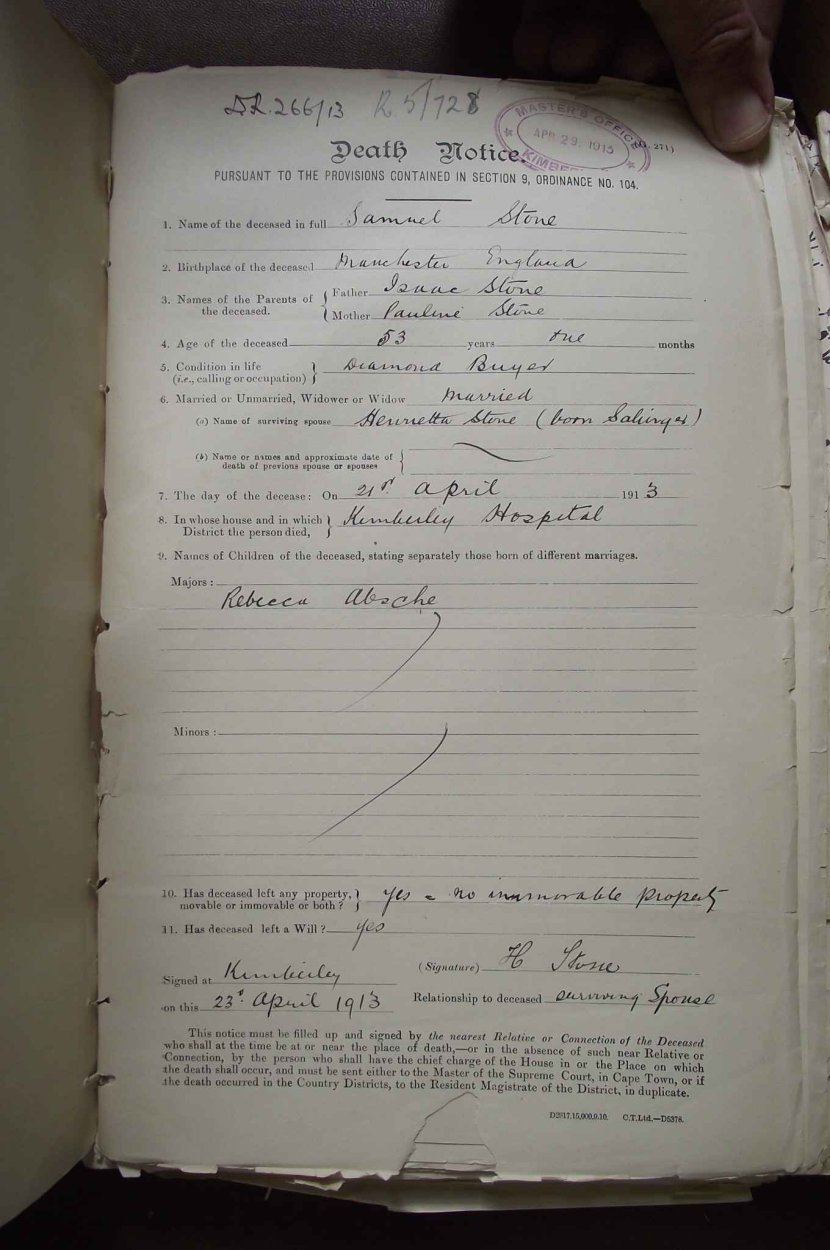 DR. 266/13 R 5/728
MASTER'S OFFICE
APR 29. 1913
271)
Death Notice.
PURSUANT TO THE PROVISIONS CONTAINED IN SECTION 9, ORDINANCE NO. 104.
1. Name of the deceased in full Samuel Stone
2. Birthplace of the deceased Manchester England
3. Names of the Parents of the deceased. { Father Isaac Stone
{ Mother Pauline Stone
4. Age of the deceased 53 years one months
5. Condition in life } Diamond Buyer
(i.e., calling or occupation) }
6. Married or Unmarried, Widower or Widow Married
(a) Name of surviving spouse Henrietta Stone (born Salinger)
(b) Name or names and approximate date of }
death of previous spouse or spouses }
7. The day of the decease: On 21st April 1913
8. In whose house and in which } Kimberley Hospital
District the person died, }
9. Names of Children of the deceased, stating separately those born of different marriages.
Majors :
Rebecca Absche
Minors :
10. Has deceased left any property, } Yes = no immovable property
movable or immovable or both ? }
11. Has deceased left a Will ? Yes
Signed at Kimberley (Signature) H Stone
on this 23d April 1913 Relationship to deceased surviving Spouse
This notice must be filled up and signed by the nearest Relative or Connection of the Deceased
who shall at the time be at or near the place of death,—or in the absence of such near Relative or
Connection, by the person who shall have the chief charge of the House in or the Place on which
the death shall occur, and must be sent either to the Master of the Supreme Court, in Cape Town, or if
the death occurred in the Country Districts, to the Resident Magistrate of the District, in duplicate.
D2817.15,000.9.10. C.T.Ltd.—D5376.